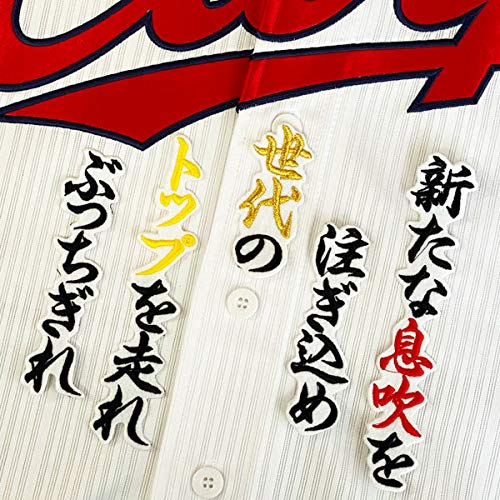 Carp
新たな息吹を
注ぎ込め
世代の
トップを走れ
ぶっちぎれ